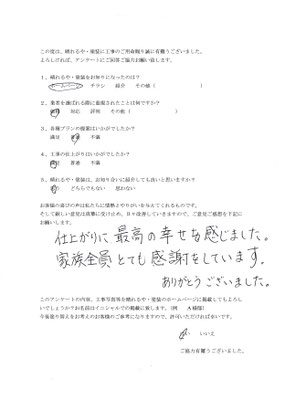 この度は、晴れるや・塗装に工事のご用命賜り誠に有難うございました。
よろしければ、アンケートにご回答ご協力お願い致します。
1、晴れるや・塗装をお知りになったのは？
ホームページ チラシ 紹介 その他（ ）
2、業者を選ばれる際に重視されたことは何ですか？
対応 評判 その他（ ）
3、各種プランの提案はいかがでしたか？
満足 普通 不満
4、工事の仕上がりはいかがでしたか？
普通 不満
5、晴れるや・塗装は、お知り合いに紹介しても良いと思いますか？
どちらでもない 思わない
お客様の喜びの声は私たちに情熱とやりがいを与えてくれるものです。
そして厳しい意見は真摯に受け止め、日々改善していきますので、ご意見ご感想を下記に
お願いします。
仕上がりに最高の幸せを感じました。
家族全員とても感謝をしています。
ありがとうございました。
このアンケートの内容、工事写真等を晴れるや・塗装のホームページに掲載してもよろし
いでしょうか？お名前はイニシャルでの掲載に致します。（例 A様邸）
今後塗り替えをお考えのお客様のご参考になりますので、許可いただければ幸いです。
いいえ
ご協力有難うございました。